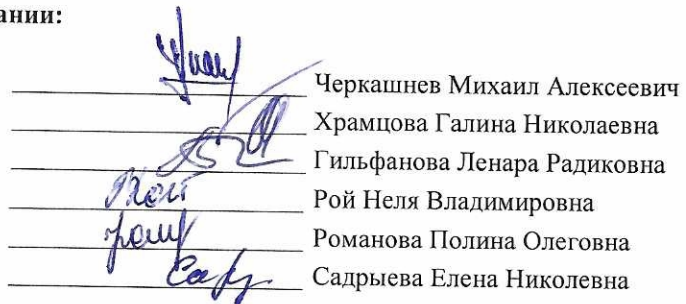 ании:
Черкашнев Михаил Алексеевич
Храмцова Галина Николаевна
Гильфанова Ленара Радиковна
Рой Неля Владимировна
Романова Полина Олеговна
Садрыева Елена Николевна